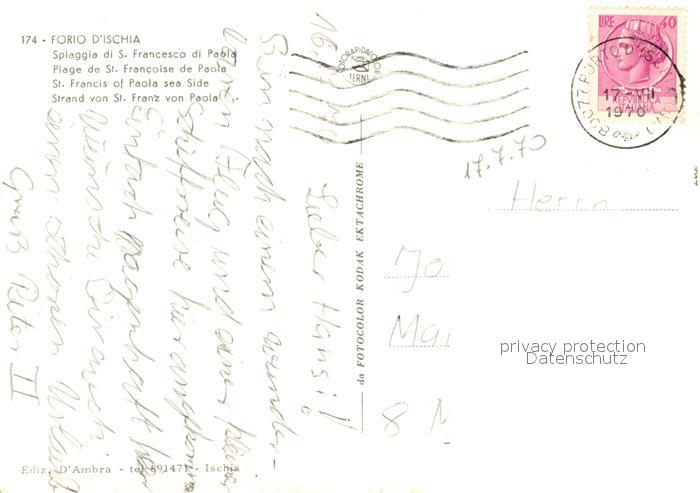 174 - FORIO D'ISCHIA
Spiaggia di S. Francesco di Paola
Plage de St. Françoise de Paola
St. Francis of Paola sea Side
Strand von St. Franz von Paola
LIRE 40
REPVBBLICA
ITALIANA
17-VII
1970
FOTORAPIDACOLOR
TERNI
17.7.70
Lieber Hansi!
Bin nach einem wunder-
Flug und einer
einfach
Wünsche Dir auch
einen schönen Urlaub
Gruß Peter II
da FOTOCOLOR KODAK EKTACHROME
Herrn
Jo
Ma
8 M
privacy protection
Datenschutz
Ediz. D'Ambra - tel 891471 - Ischia